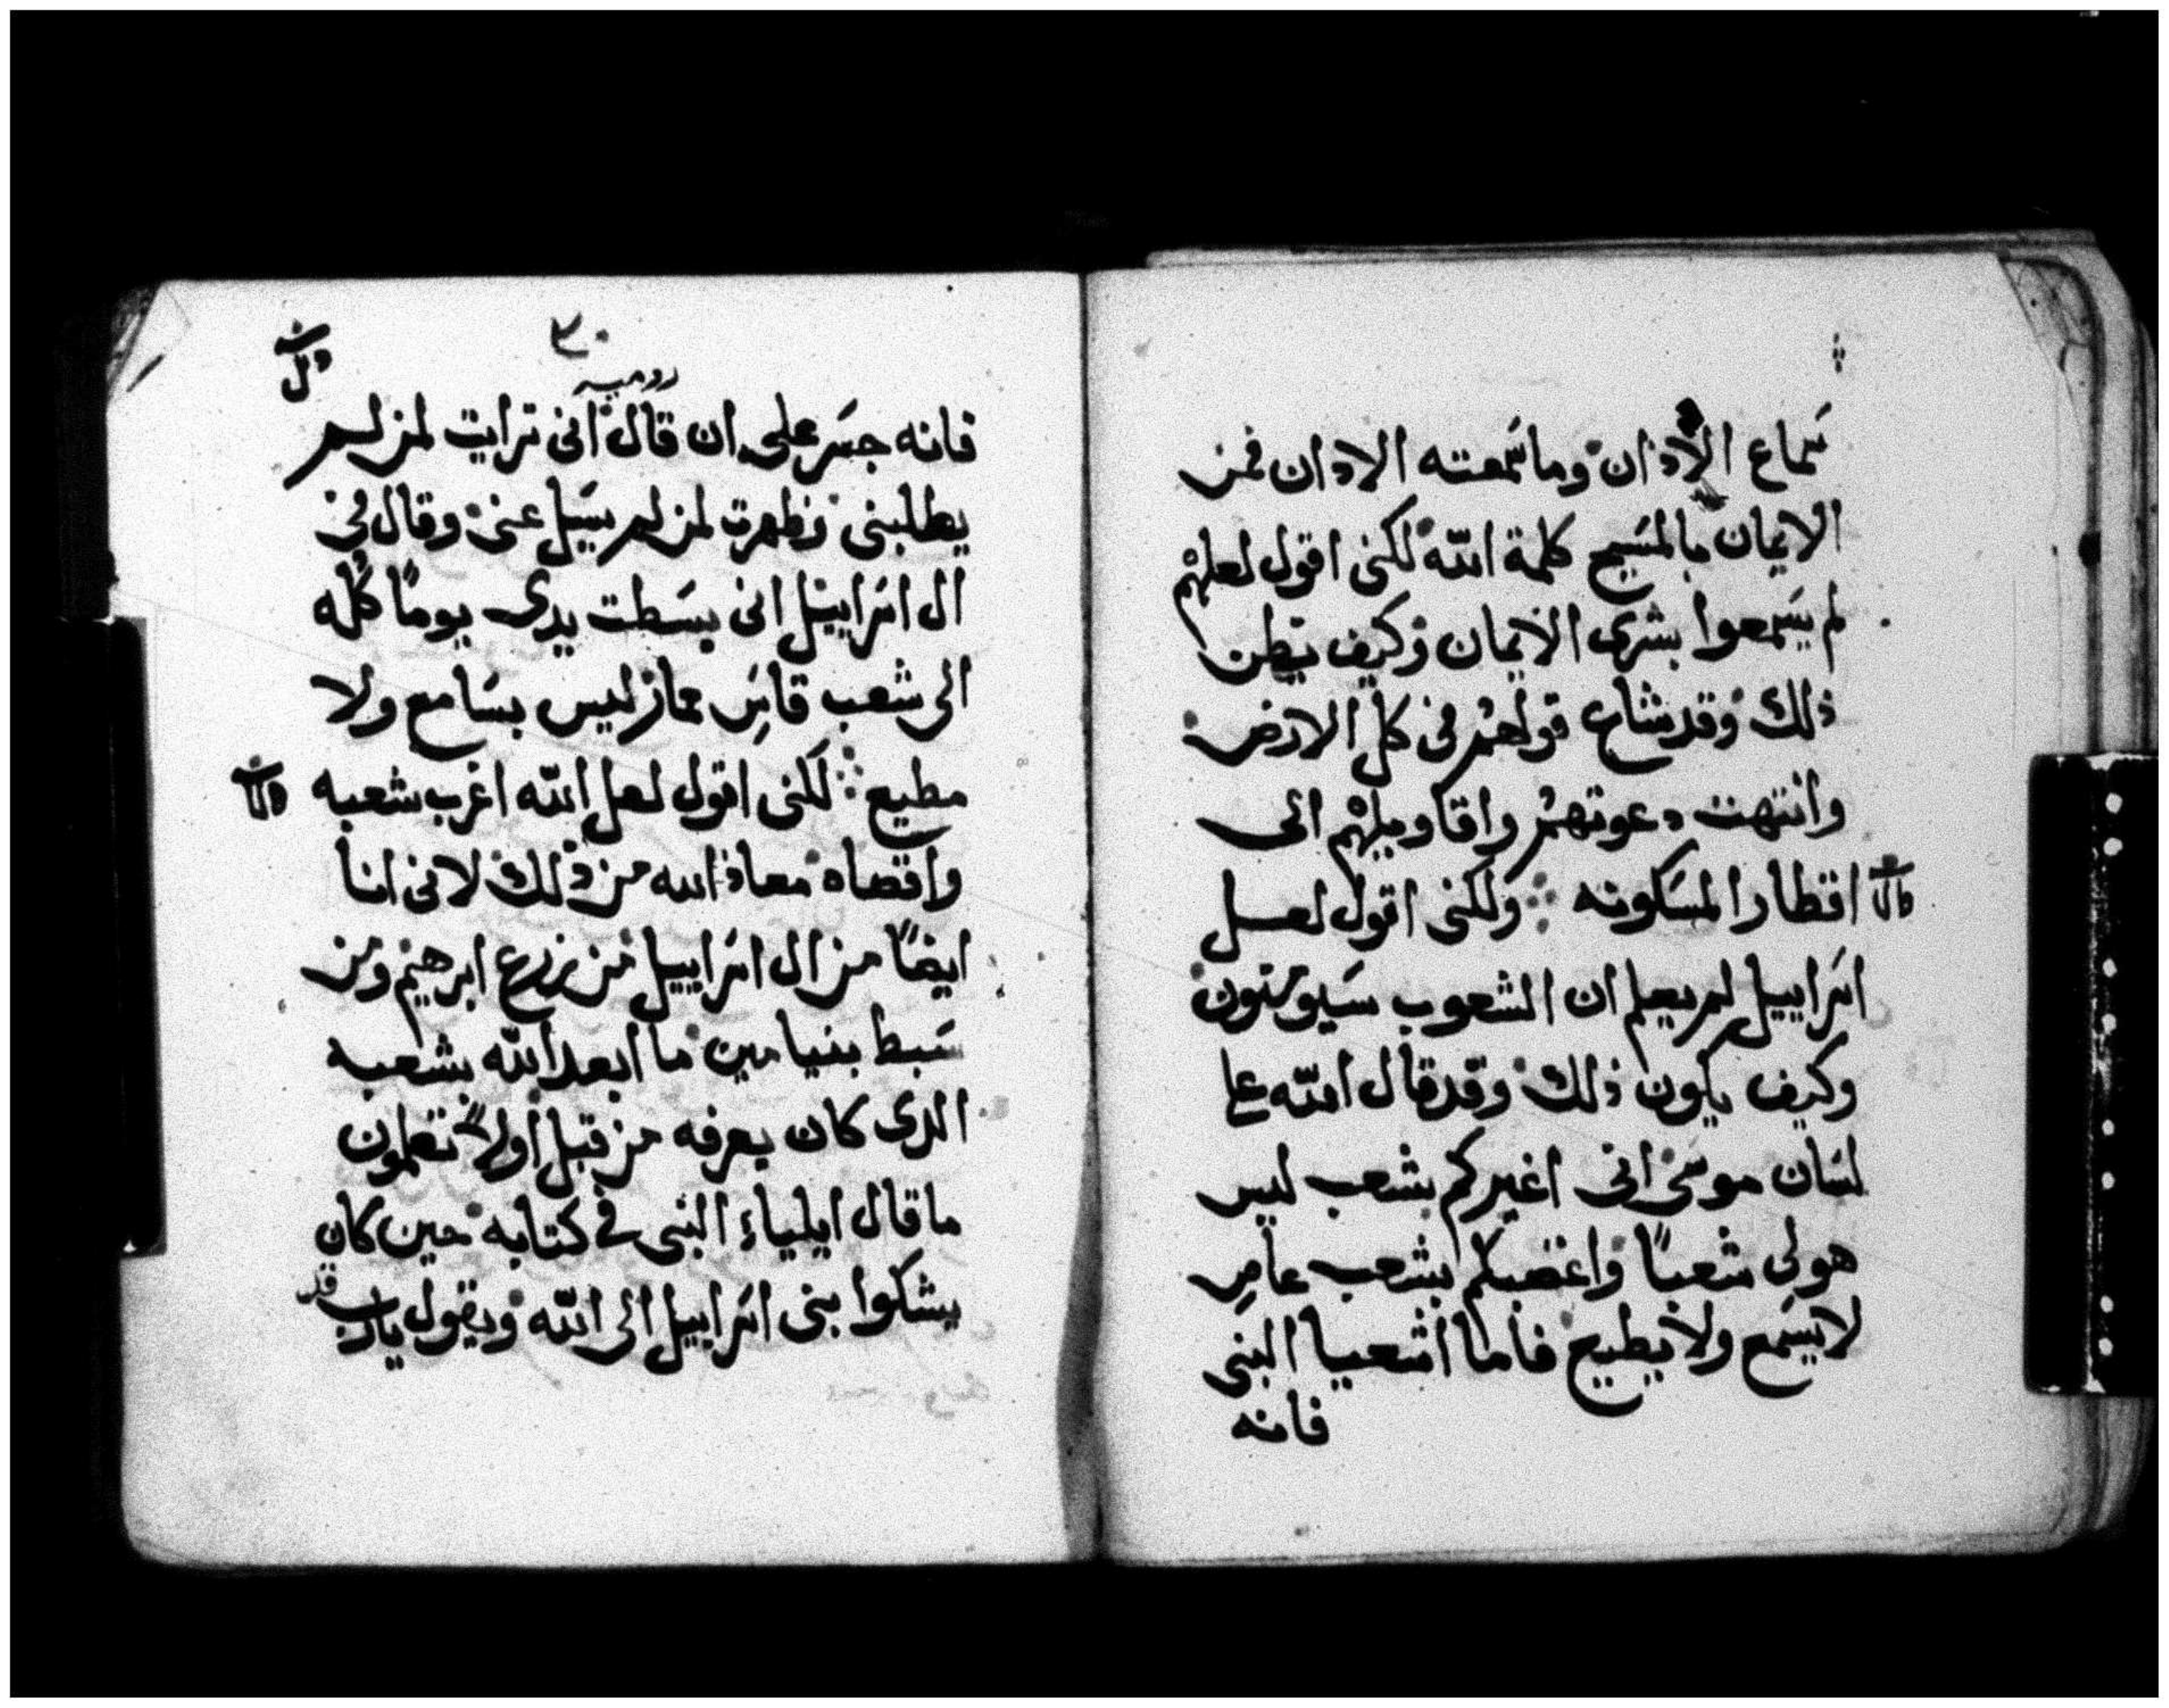 سماع الاذان وما سمعته الاذان فمن
الايمان بالمسيح كلمة الله لكنى اقول لعلهم
لم يسمعوا بشرى الايمان وكيف يظن
ذلك وقد شاع قولهم فى كل الارض
وانتهت دعوتهم واقاويلهم الى
اقطار المسكونه ولكنى اقول لعل
اسراييل لم يعلم ان الشعوب سيومنون
وكيف يكون ذلك وقد قال الله على
لسان موسى انى اغيركم بشعب ليس
هو لى شعباً واغضبكم بشعب عاصِ
لا يسمع ولا يطيع فاما اشعيا النبى
فانه
٣٠
روميه
فانه جسر على ان قال انى ترايت لمن لم
يطلبنى وظهرت لمن لم يسَيل عنى وقال فى
ال اسراييل انى بسَطت يدى يوماً كُله
الى شعب قاسِ معاز ليس بسَامع ولا
مطيع لكنى اقول لعل الله اغرب شعبه
واقصاه معاذ الله من ذلك لانى انا
ايضاً من ال اسراييل من زرع ابرهيم ومن
سَبط بنيامين ما ابعد الله بشعبه
الدى كان يعرفه من قبل اولا تعلمون
ما قال ايلياء النبى فى كتابه حين كان
يشكوا بنى اسراييل الى الله ويقول يارب قد